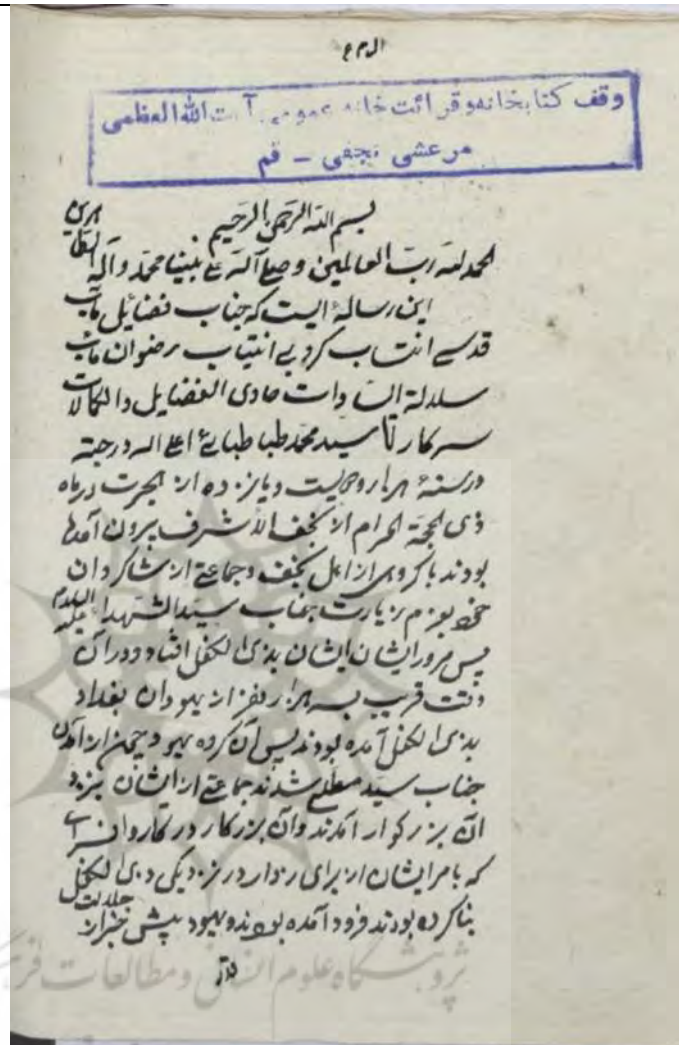 وقف کتابخانه و قرائت خانه عمومی آیت الله العظمی
مرعشی نجفی - قم
بسم الله الرحمن الرحیم
الحمد لله رب العالمین و صلی الله علی نبینا محمد و آله
این رساله ایست که جناب فضایل مآب
قدسی انتساب کروبی انتیاب رضوان مآب
سلالة السادات حاوی الفضایل والکمالات
سرکار سید محمد طباطبائی اعلی الله درجته
در سنهٔ هزار و دویست و یازده از هجرت در ماه
ذی الحجة الحرام از نجف الاشرف بیرون آمده
بودند با گروهی از اهل نجف و جماعتی از شاکردان
خود بعزم زیارت جناب سید الشهدا علیه السلام
پس مرور ایشان بذی الکفل افتاد و در آن
وقت قریب بسه هزار نفر از یهودان بغداد
بذی الکفل آمده بودند پس آن کروه یهود چون از آمدن
جناب سید مطلع شدند جماعتی از ایشان بنزد
آن بزرکوار آمدند وآن بزرکار در کاروانسرای
که بامر ایشان از برای زوار در نزدیکی ذی الکفل
بنا کرده بودند فرود آمده بودند و یهود پیش جلالت
پژوهشگاه علوم انسانی و مطالعات فرهنگی